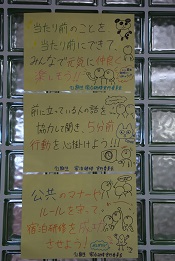 当たり前のことを、
当たり前にできて、
みんなで元気に仲良く
楽しもう!!
前に立っている人の話を
協力して聞き、5分前
行動を心掛けよう!!!
公共のマナーや
ルールを守って、
宿泊研修を
させよう!